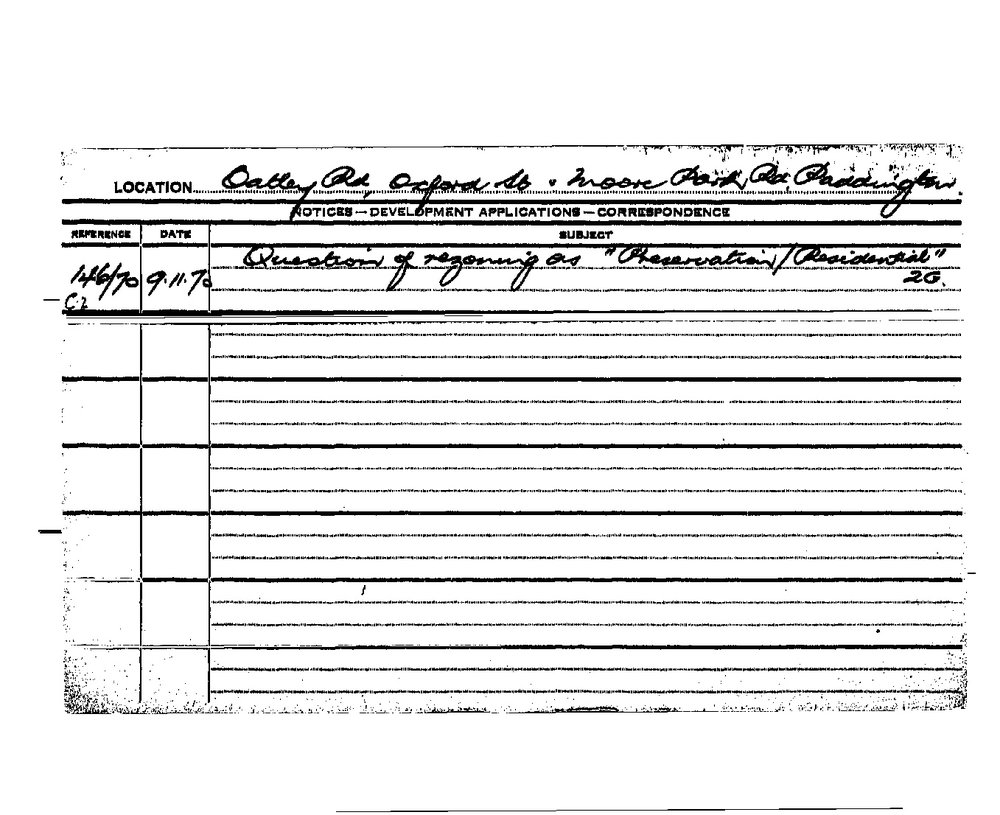 LOCATION Oatley Rd, Oxford St & Moore Park Rd Paddington.
NOTICES — DEVELOPMENT APPLICATIONS — CORRESPONDENCE
REFERENCE DATE SUBJECT
146/70 9.11.70 Question of rezoning as "Preservation/Residential"
2G.
C.2